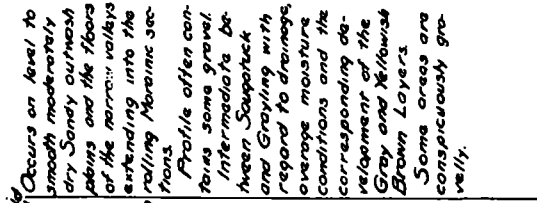 Occurs on level to
smooth moderately
dry Sandy outwash
plains and the floors
of the narrow valleys
extending into the
rolling Morainic sec-
tions.
Profile often con-
tains some gravel.
Intermediate be-
tween Saugatuck
and Grayling with
regard to drainage,
average moisture
conditions and the
corresponding de-
velopment of the
Gray and Yellowish
Brown Layers.
Some areas are
conspicuously gra-
velly.